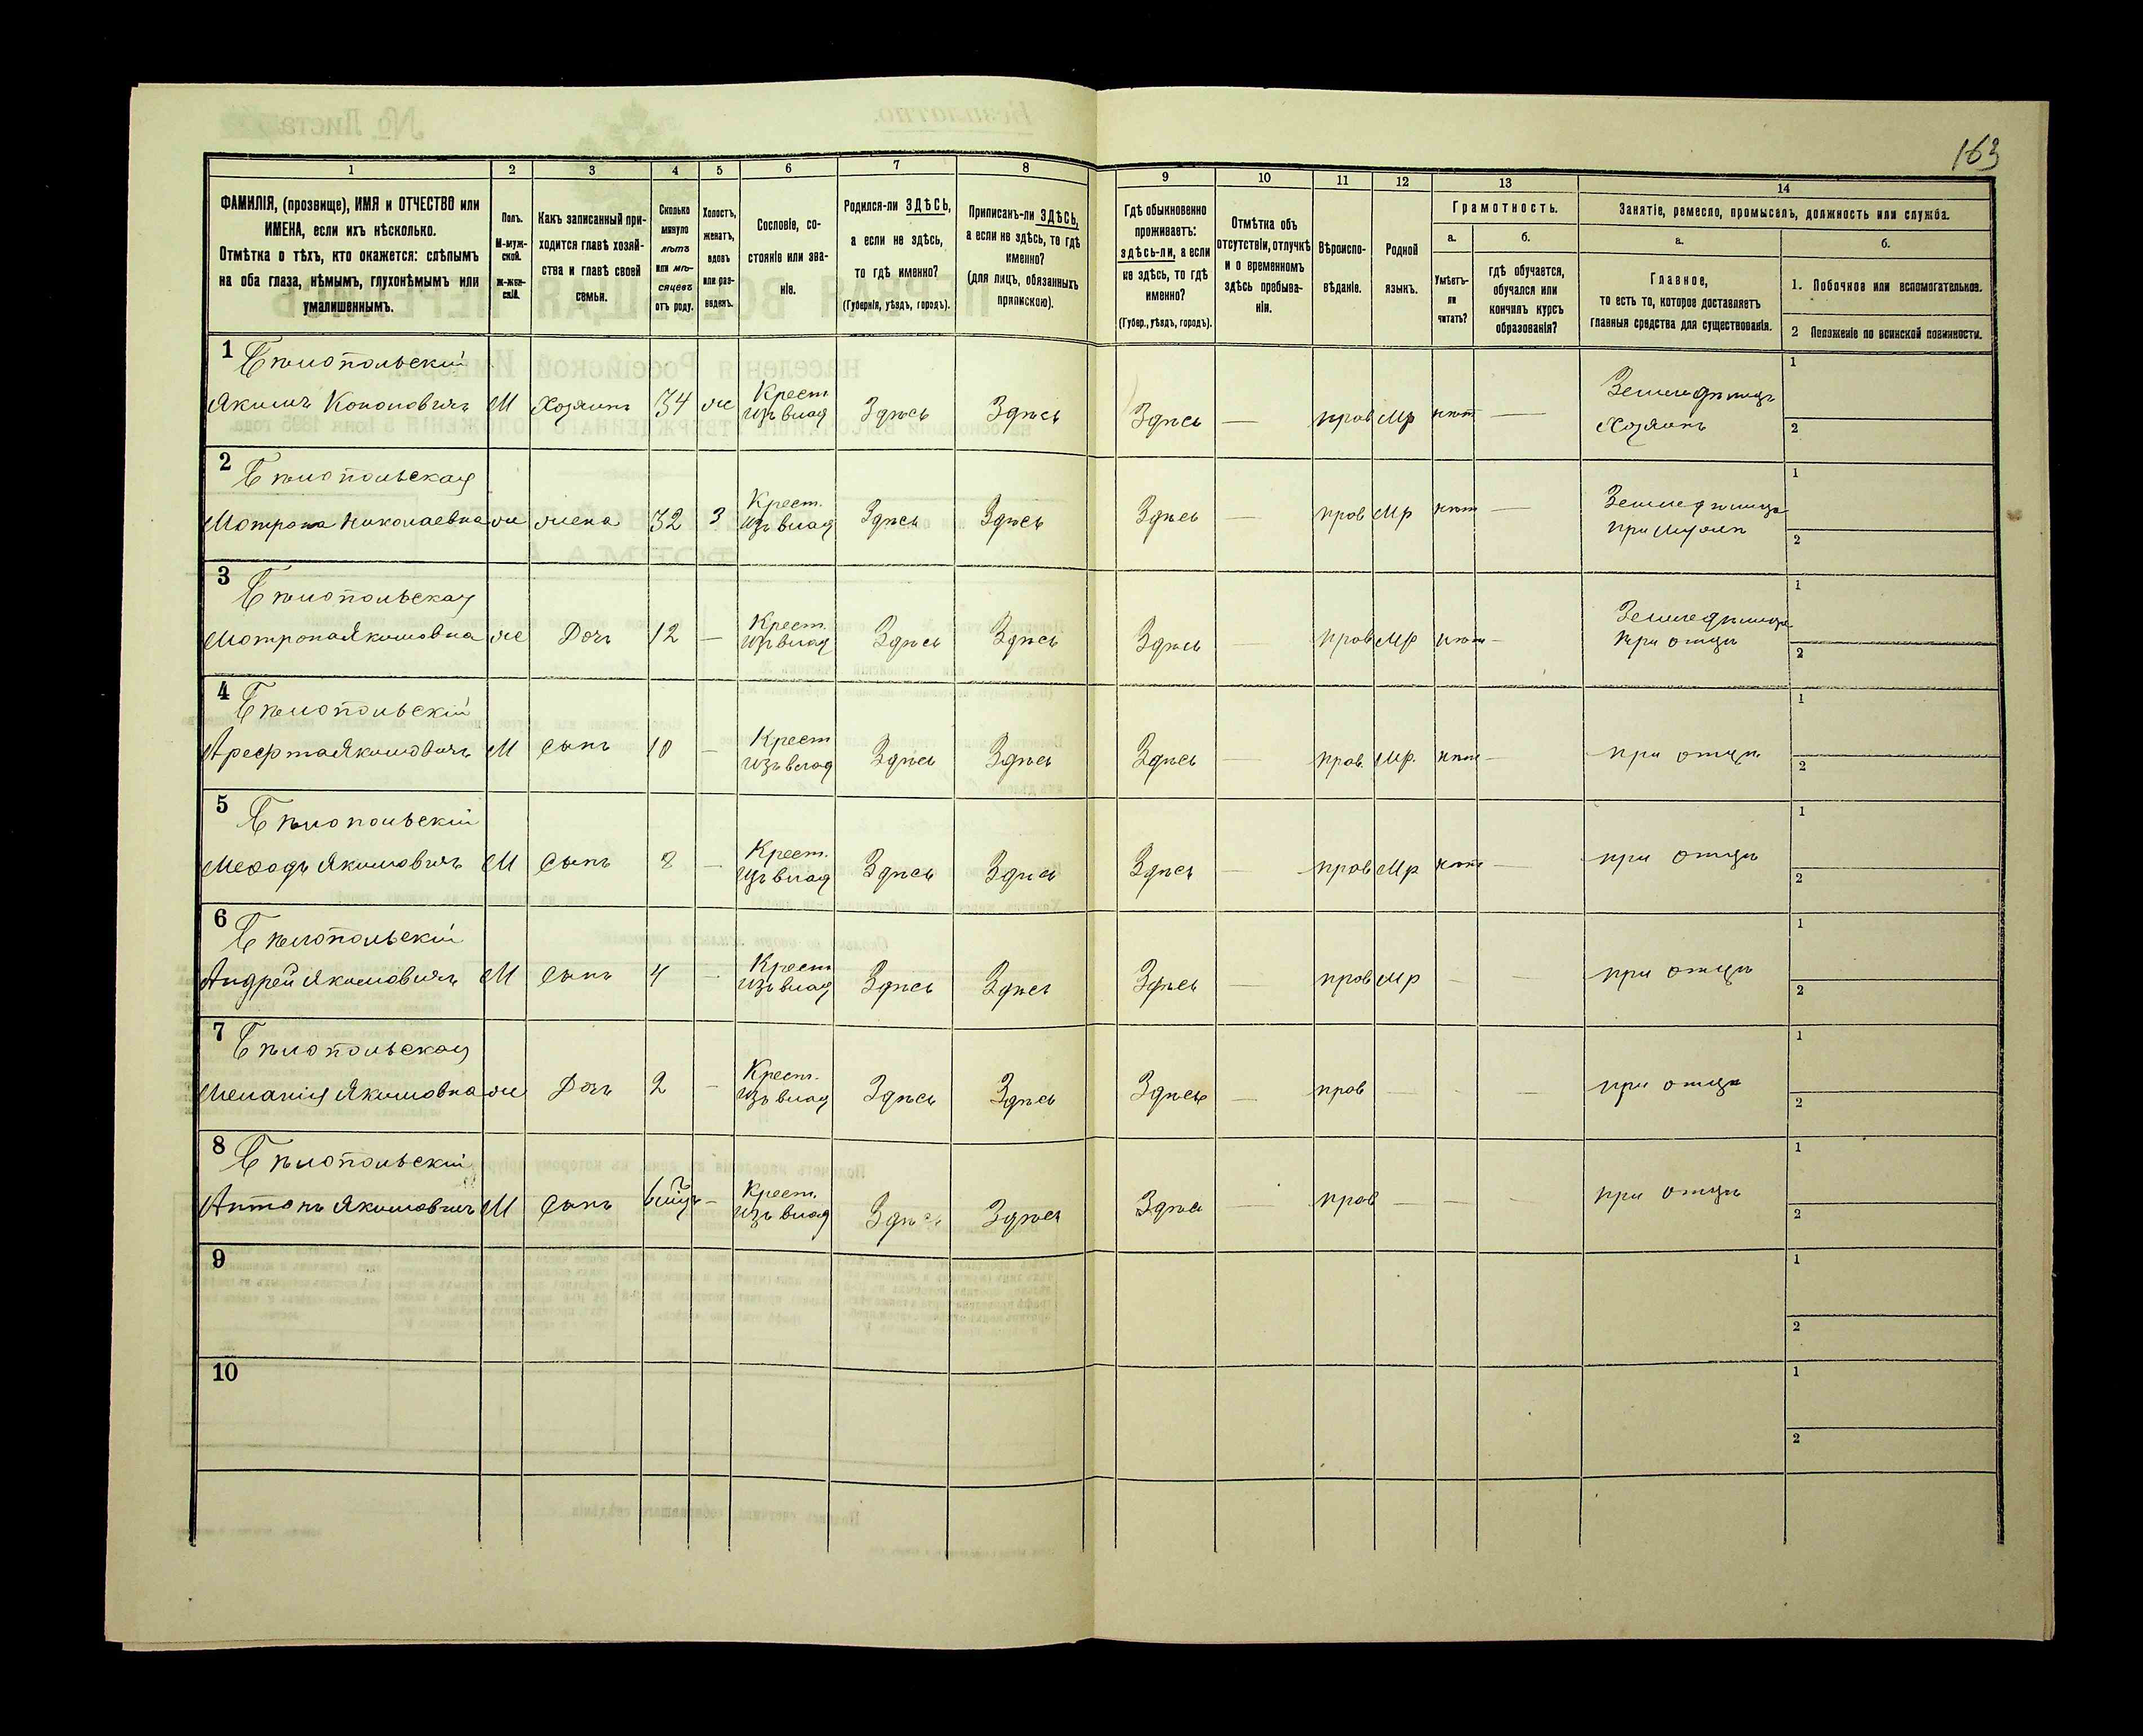 163
1 2 3 4 5 6 7 8 9 10 11 12 13 14
ФАМИЛІЯ, (прозвище), ИМЯ и ОТЧЕСТВО или
ИМЕНА, если ихъ нѣсколько.
Отмѣтка о тѣхъ, кто окажется: слѣпымъ
на оба глаза, нѣмымъ, глухонѣмымъ или
умалишеннымъ.
Полъ.
М-муж-
ской.
ж-жен-
скій.
Какъ записанный при-
ходится главѣ хозяй-
ства и главѣ своей
семьи.
Сколько
минуло
лѣтъ
или мѣ-
сяцевъ
отъ роду.
Холостъ,
женатъ,
вдовъ
или раз-
веденъ.
Сословіе, со-
стояніе или зва-
ніе.
Родился-ли ЗДѢСЬ,
а если не здѣсь,
то гдѣ именно?
(Губернія, уѣздъ, городъ).
Приписанъ-ли ЗДѢСЬ,
а если не здѣсь, то гдѣ
именно?
(для лицъ, обязанныхъ
припискою).
Гдѣ обыкновенно
проживаетъ:
здѣсь-ли, а если
не здѣсь, то гдѣ
именно?
(Губер., уѣздъ, городъ).
Отмѣтка объ
отсутствіи, отлучкѣ
и о временномъ
здѣсь пребыва-
ніи.
Вѣроиспо-
вѣданіе.
Родной
языкъ.
Грамотность.
а.
Умѣетъ-
ли
читать?
б.
гдѣ обучается,
обучался или
кончилъ курсъ
образованія?
Занятіе, ремесло, промыселъ, должность или служба.
а.
Главное,
то есть то, которое доставляетъ
главныя средства для существованія.
б.
1. Побочное или вспомогательное.
2 Положеніе по воинской повинности.
1 Бѣлопольскій
Якимъ Кононовичъ М Хозяинъ 34 ж Крест. изъ влад Здѣсь Здѣсь Здѣсь — прав Мр нѣт — Земледѣлецъ Хозяинъ 1 2
2 Бѣлопольская
Мотрона Николаевна ж жена 32 З Крест. изъ влад Здѣсь Здѣсь Здѣсь — прав Мр нѣт — при мужѣ 1 2
3 Бѣлопольская
Мотрона Якимовна ж Дочь 12 — Крест. изъ влад Здѣсь Здѣсь Здѣсь — прав Мр нѣт — при отцѣ 1 2
4 Бѣлопольскій
Якимовичъ М Сынъ 10 — Крест изъ влад Здѣсь Здѣсь Здѣсь — прав. Мр. нѣт — при отцѣ 1 2
5 Бѣлопольскій
Якимовичъ М Сынъ 8 — Крест. изъ влад Здѣсь Здѣсь Здѣсь — прав Мр нѣт — при отцѣ 1 2
6 Бѣлопольскій
Андрей Якимовичъ М Сынъ 4 — Крест изъ влад Здѣсь Здѣсь Здѣсь — прав Мр — — при отцѣ 1 2
7 Бѣлопольская
Меланія Якимовна ж Дочь 2 — Крест. изъ влад Здѣсь Здѣсь Здѣсь — прав — — — при отцѣ 1 2
8 Бѣлопольскій
Антонъ Якимовичъ М Сынъ 6 — Крест. изъ влад Здѣсь Здѣсь Здѣсь — прав — — — при отцѣ 1 2
9 1 2
10 1 2